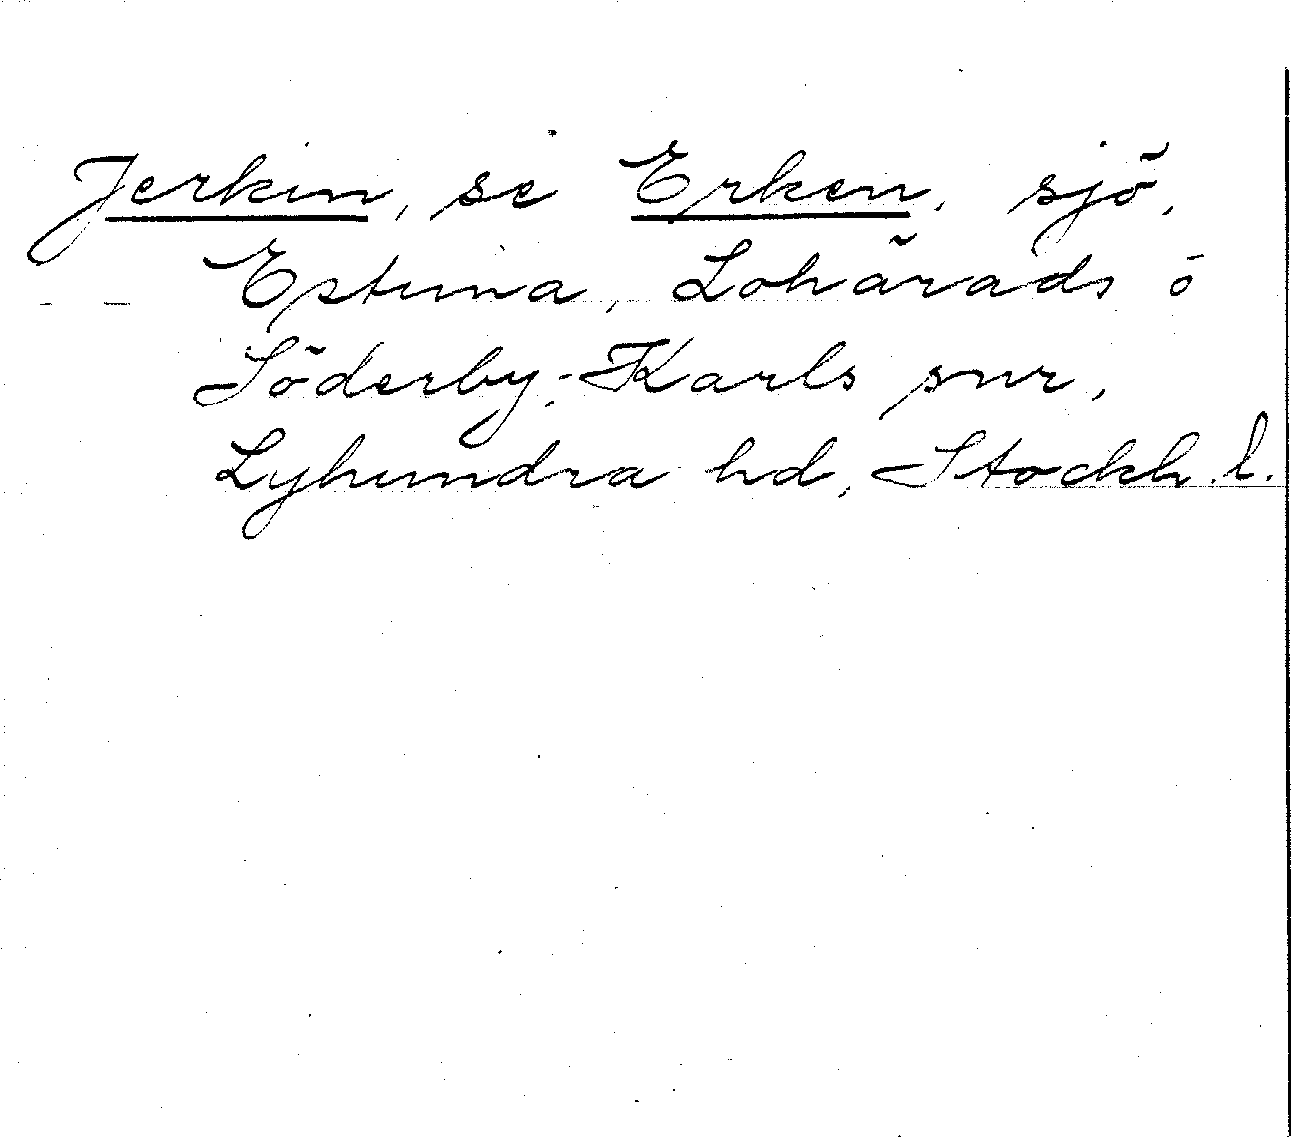 Jerkin, se Erken, sjö,
Estuna, Lohärads o
Söderby-Karls snr,
Lyhundra hd, Stockh. l.